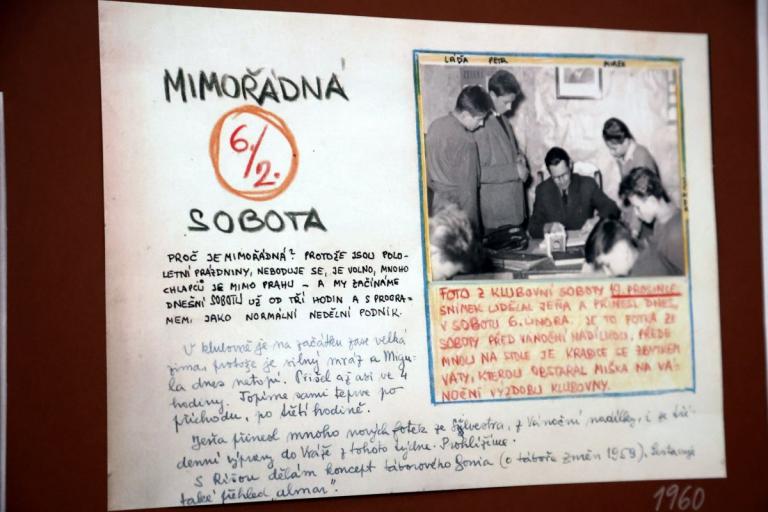 LÁĎA PETR MIREK
MIMOŘÁDNÁ
6./2.
SOBOTA
PROČ JE MIMOŘÁDNÁ? PROTOŽE JSOU POLO-
LETNÍ PRÁZDNINY, NEBODUJE SE, JE VOLNO, MNOHO
CHLAPCŮ JE MIMO PRAHU – A MY ZAČÍNÁME
DNEŠNÍ SOBOTU UŽ OD TŘÍ HODIN A S PROGRA-
MEM, JAKO NORMÁLNÍ NEDĚLNÍ PODNIK.
FOTO Z KLUBOVNÍ SOBOTY 19. PROSINCE.
SNÍMEK UDĚLAL JEŇA A PŘINESL DNES,
V SOBOTU 6. ÚNORA. JE TO FOTKA ZE
SOBOTY PŘED VÁNOČNÍ NADÍLKOU, PŘEDE
MNOU NA STOLE JE KRABICE SE ZBYTKEM
VATY, KTEROU OBSTARAL MIŠKA NA VÁ-
NOČNÍ VÝZDOBU KLUBOVNY.
V klubovně je na začátku zase velká
zima, protože je silný mráz a Migu-
la dnes netopí. Přišel až asi ve 4
hodiny. Topíme sami teprve po
příchodu, po třetí hodině.
Jeňa přinesl mnoho nových fotek ze Silvestra, z Vánoční nadílky, i ze tří-
denní výpravy do Vráže z tohoto týdne. Prohlížíme.
S Ríšou dělám koncept táborového (o táboře Změn 1959). Sestavuji
také přehled „almar".
1960